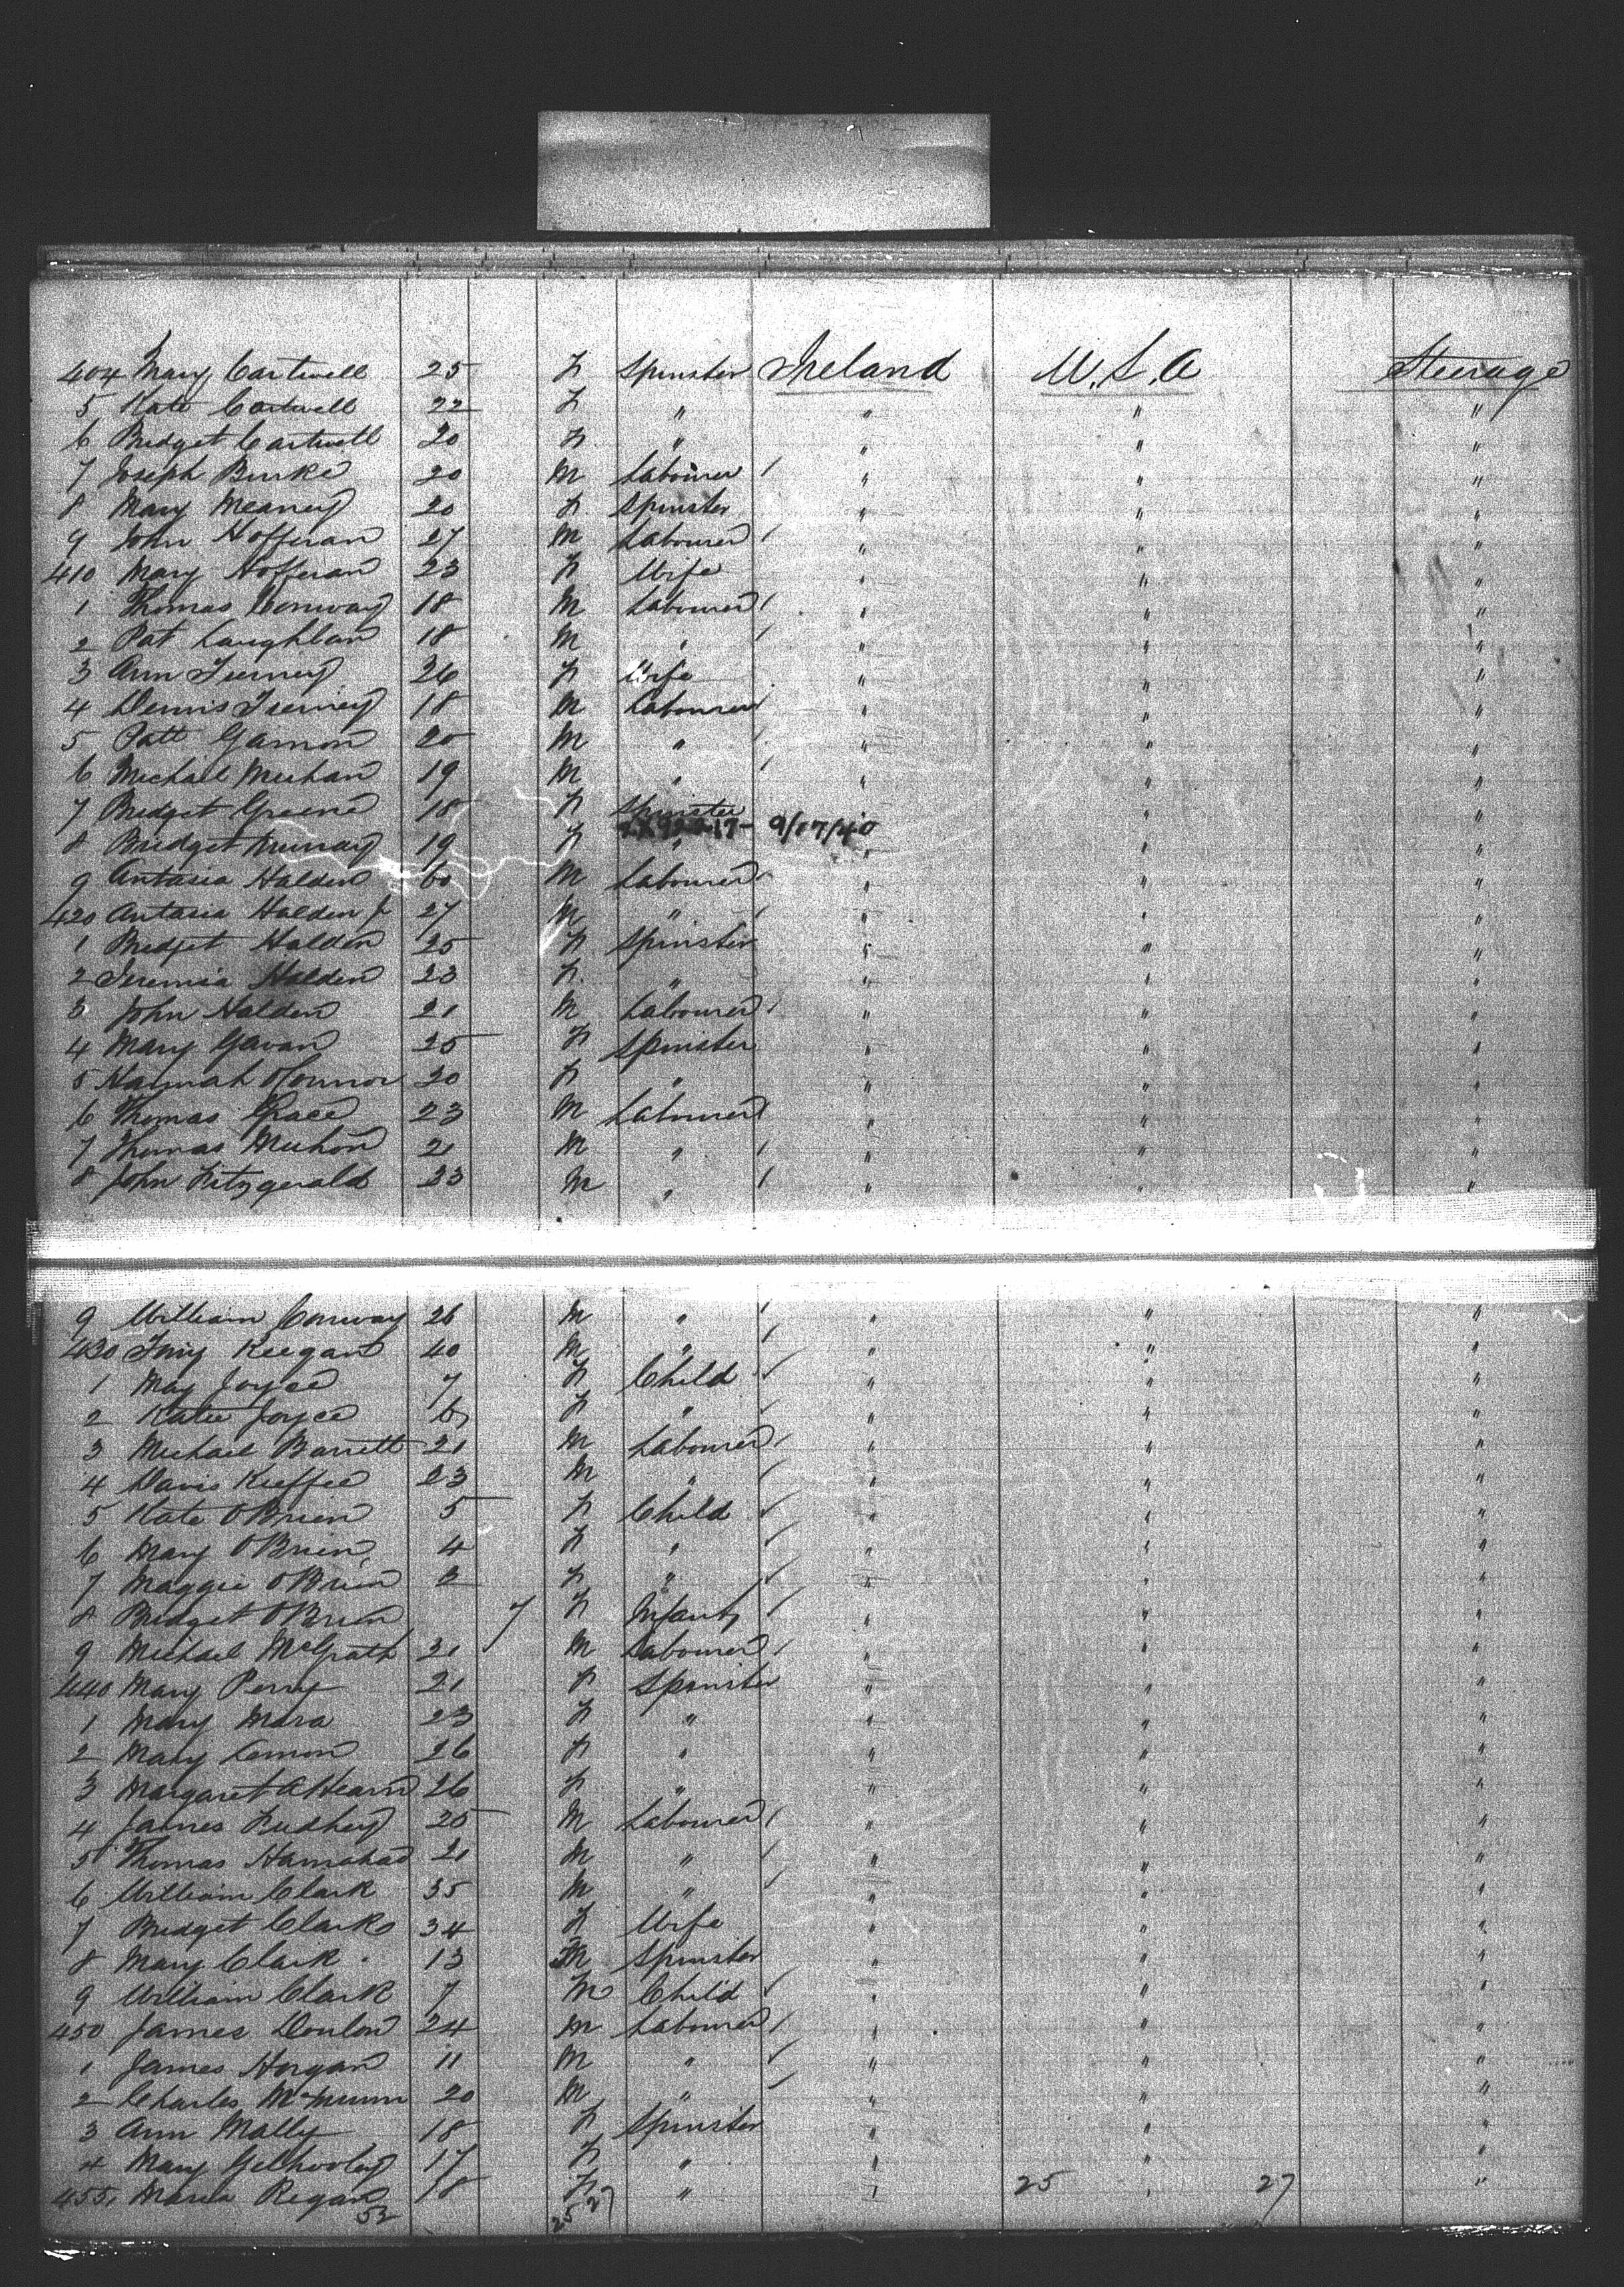 404 Mary Cartwell 25 F Spinster Ireland U.S.A Steerage
5 Kate Cartwell 22 F " " " "
6 Bridget Cartwell 20 F " " " "
7 Joseph Burke 20 M Labourer " " "
8 Mary Meaney 20 F Spinster " " "
9 John Hofferan 27 M Labourer " " "
410 Mary Hofferan 23 F Wife " " "
1 Thomas Conway 18 M Labourer " " "
2 Pat Laughlan 18 M " " " "
3 Ann Tierney 26 F Wife " " "
4 Dennis Tierney 18 M Labourer " " "
5 Patt Gannon 20 M " " " "
6 Michael Meehan 19 M " " " "
7 Bridget Greene 18 F Spinster
9/17/40
8 Bridget Murray 19 F " " " "
9 Antasia Halden 60 M Labourer " " "
420 Antasia Halden Jr 27 M " " " "
1 Bridget Halden 25 F Spinster " " "
2 Jeremia Halden 23 F " " " "
3 John Halden 21 M Labourer " " "
4 Mary Gavan 25 F Spinster " " "
5 Hannah OConnor 20 F " " " "
6 Thomas Grace 23 M Labourer " " "
7 Thomas Meehan 21 M " " " "
8 John Fitzgerald 23 M " " " "
9 William Conway 26 M " " " "
430 Keegan 40 M " " " "
1 May Joyce 7 F Child " " "
2 Katie Joyce 6 F " " " "
3 Michael Barrett 21 M Labourer " " "
4 Davis Keeffee 23 M " " " "
5 Kate OBrien 5 F Child " " "
6 Mary OBrien 4 F " " " "
7 Maggie OBrien 2 F " " " "
8 Bridget OBrien 7 F Infant " " "
9 Michael McGrath 21 M Labourer " " "
440 Mary Perry 21 F Spinster " " "
1 Mary Mara 23 F " " " "
2 Mary Lemon 26 F " " " "
3 Margaret AHearn 26 F " " " "
4 James 25 M Labourer " " "
5 Thomas 21 M " " " "
6 William Clark 35 M " " " "
7 Bridget Clark 34 F Wife " " "
8 Mary Clark 13 Spinster " " "
9 William Clark 7 M Child " " "
450 James Donlon 24 M Labourer " " "
1 James Horgan 11 M " " " "
2 Charles 20 M " " " "
3 Ann Mally 18 F Spinster " " "
4 Mary Gilhooley 17 F " " " "
455 Maria Regan 18 F " " 25 " 27 "
52 25 27